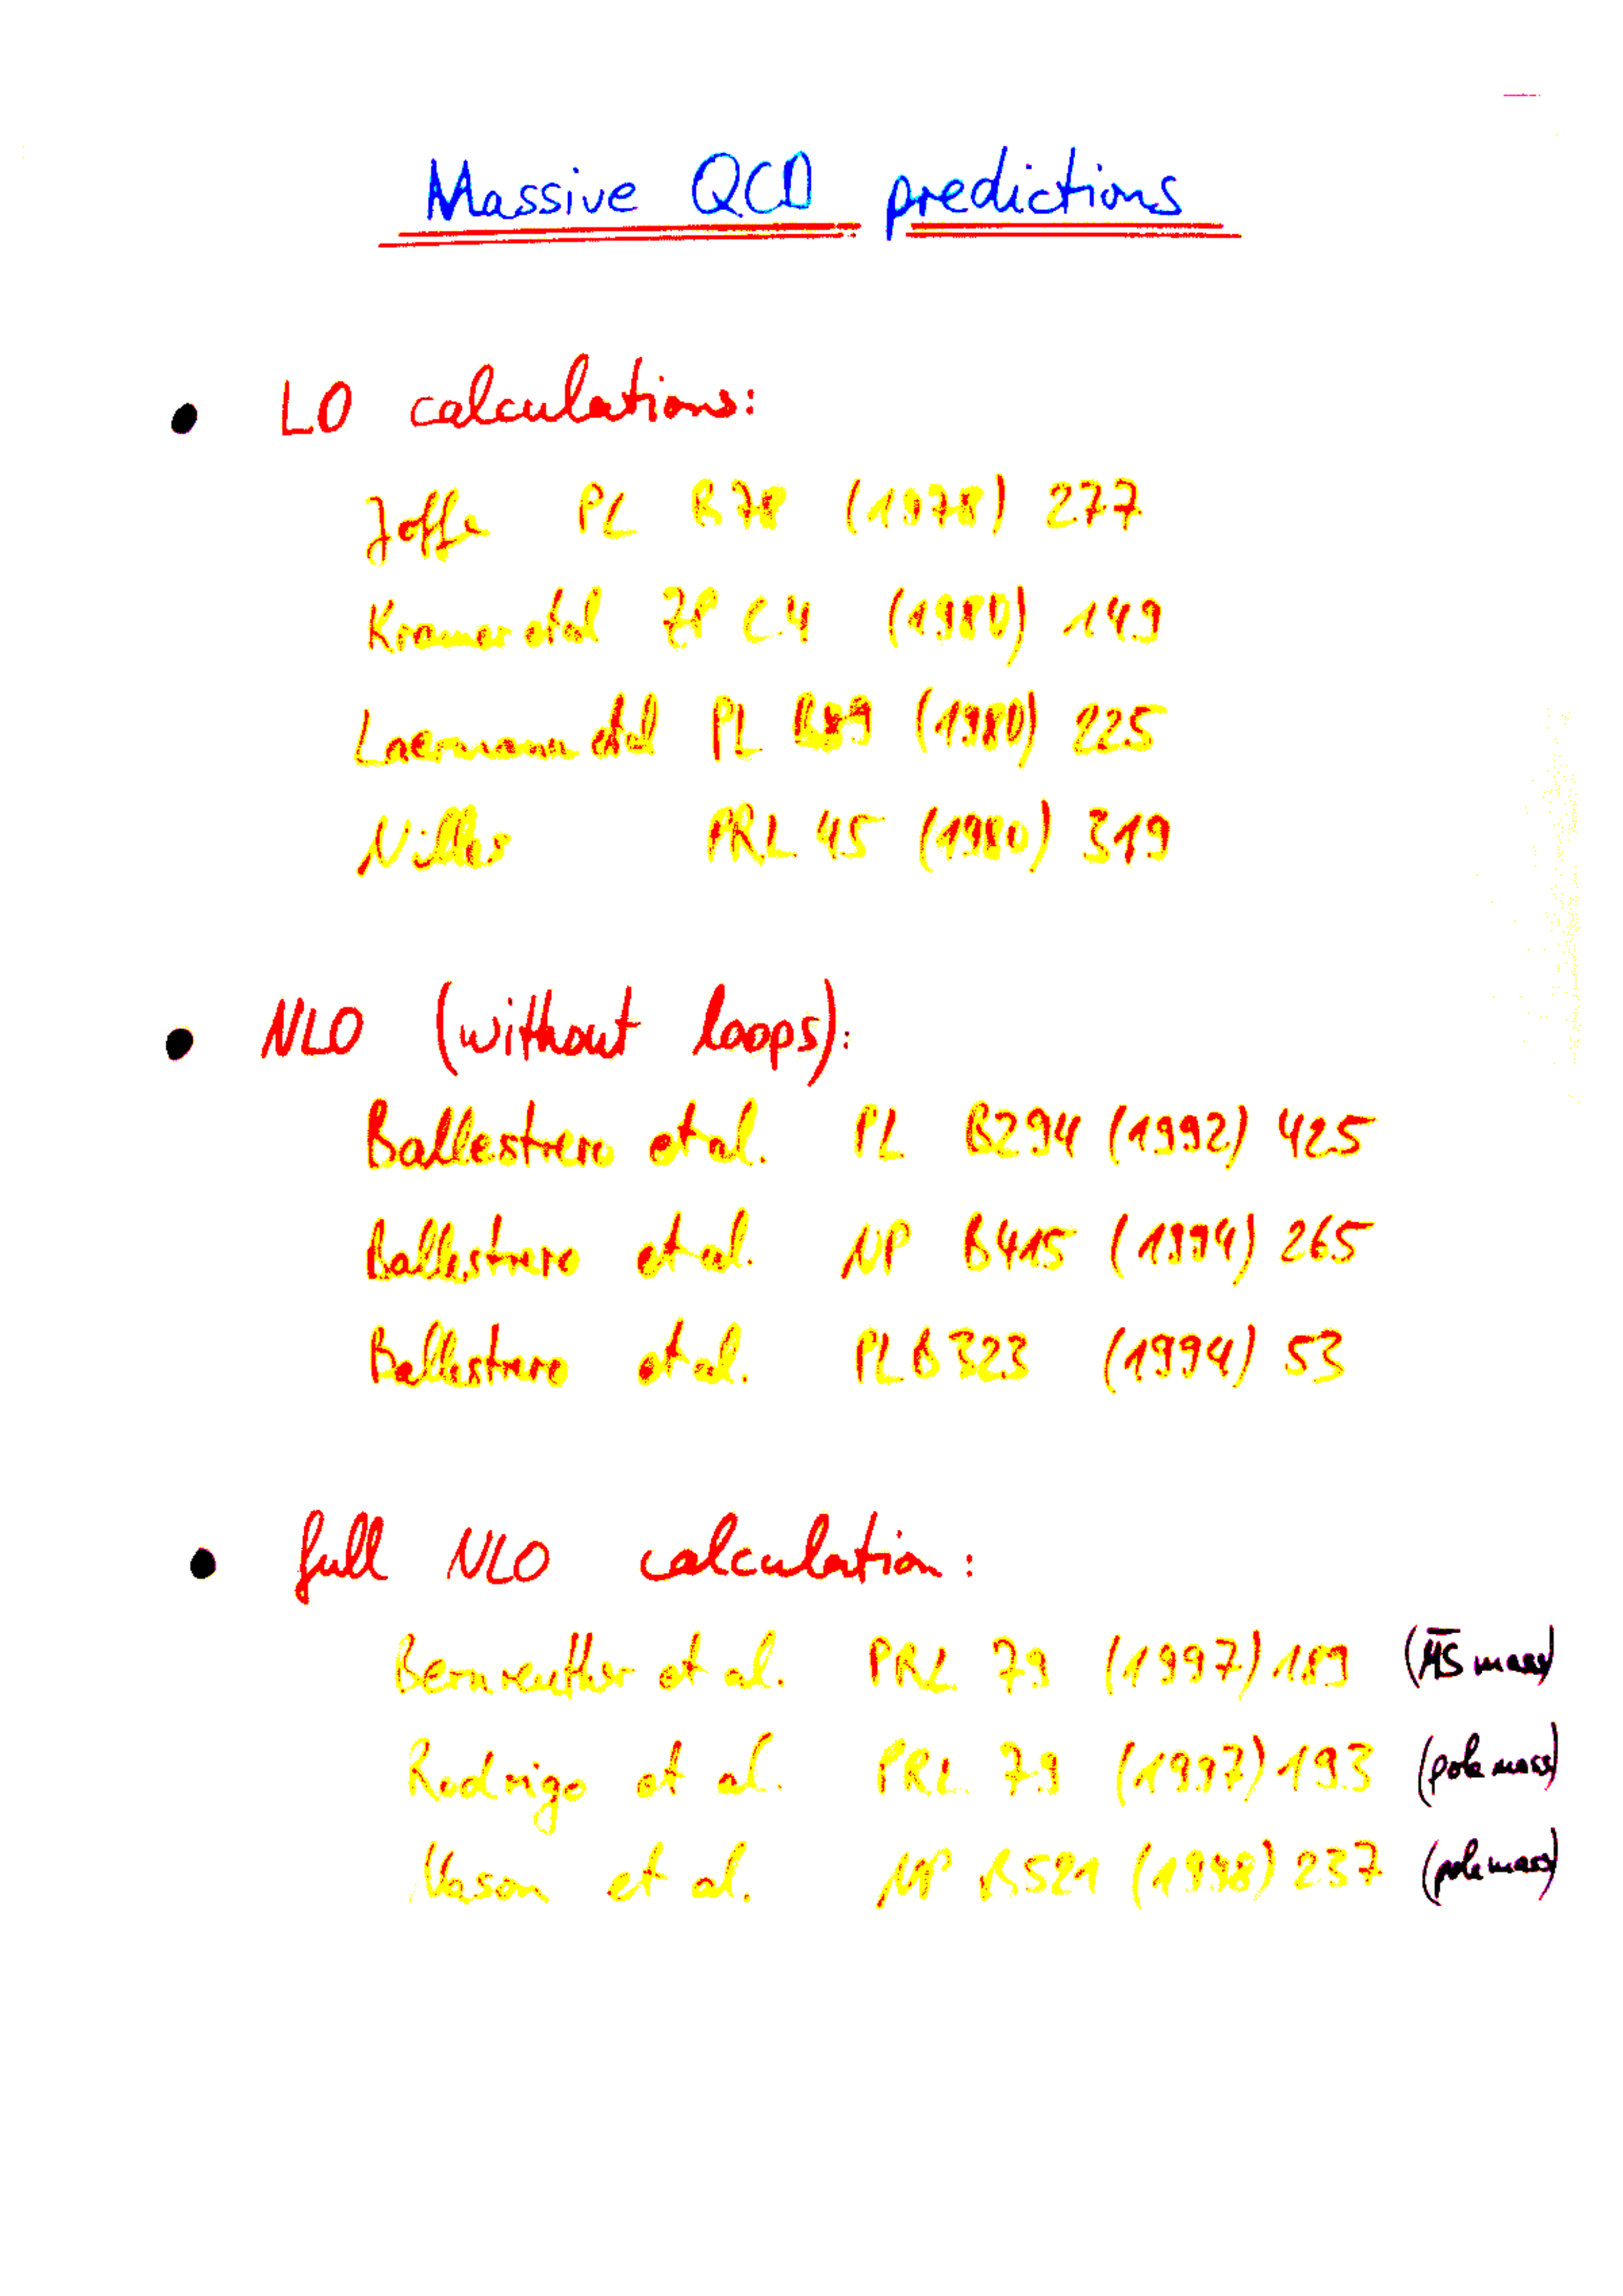 Massive QCD predictions
• LO calculations:
Joffe PL B78 (1978) 277
Kramer et al ZP C4 (1980) 149
Laermann et al PL B89 (1980) 225
Nilles PRL 45 (1980) 319
• NLO (without loops):
Ballestrero et al. PL B294 (1992) 425
Ballestrero et al. NP B415 (1994) 265
Ballestrero et al. PL B323 (1994) 53
• full NLO calculation:
Bernreuther et al. PRL 79 (1997) 189 (M̅S̅ mass)
Rodrigo et al. PRL 79 (1997) 193 (pole mass)
Nason et al. NP B521 (1998) 237 (pole mass)